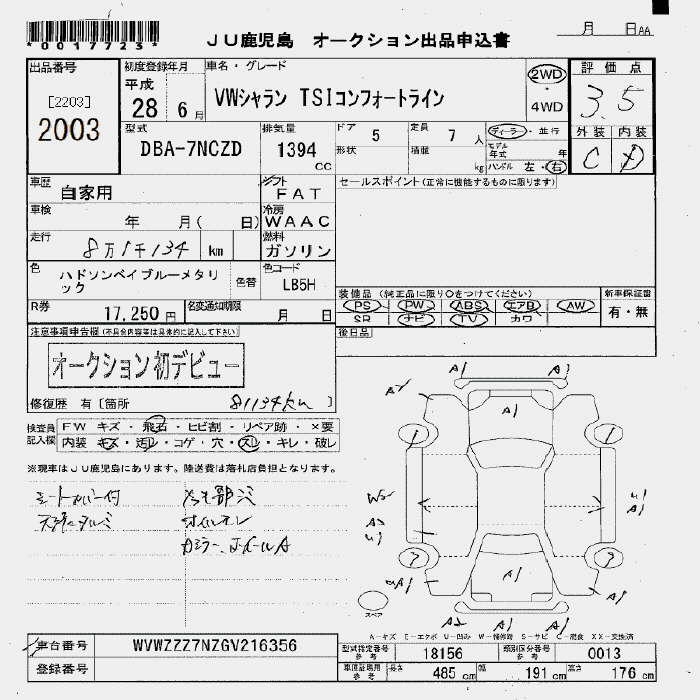 *0017723*
JU鹿児島 オークション出品申込書
月 日AA
出品番号 初度登録年月 車名・グレード 2WD・4WD 評価点
[2203]
2003
平成 28 6月 VWシャラン TSIコンフォートライン 3.5
外装 内装
C D
型式 排気量 ドア 5 定員 7人 ディーラー・並行
DBA-7NCZD 1394 CC 形状 積載 kg モデル年式 年
ハンドル 左・右
車歴 自家用 シフト FAT セールスポイント(正常に機能するものに限ります)
車検 年 月( 日) 冷房 WAAC
走行 8万1千134 km 燃料 ガソリン
色 ハドソンベイブルーメタリック 色替 色コード LB5H
装備品(純正品に限り○をつけてください) 新車保証書
PS PW ABS エアB AW 有・無
SR ナビ TV カワ
R券 17,250円 名変通知期限 月 日
後日品
注意事項申告欄(不具合内容等は具体的に記入して下さい)
オークション初デビュー
修復歴 有[箇所 81134km ]
検査員記入欄 FW キズ・飛石・ヒビ割・リペア跡・×要
内装 キズ・汚レ・コゲ・穴・スレ・キレ・破レ
※現車はJU鹿児島にあります。陸送費は落札店負担となります。
シートカバー付
天張タルミ
A1 A1
A1
A2
W2
A2
U1
A1
A1
A2 A1
スペア
A-キズ E-エクボ U-凹み W-補修跡 S-サビ C-腐食 XX-交換済
車台番号 WVWZZZ7NZGV216356
登録番号
型式指定番号 参考 18156 類別区分番号 参考 0013
車庫証明用 参考 長さ 485 cm 幅 191 cm 高さ 176 cm